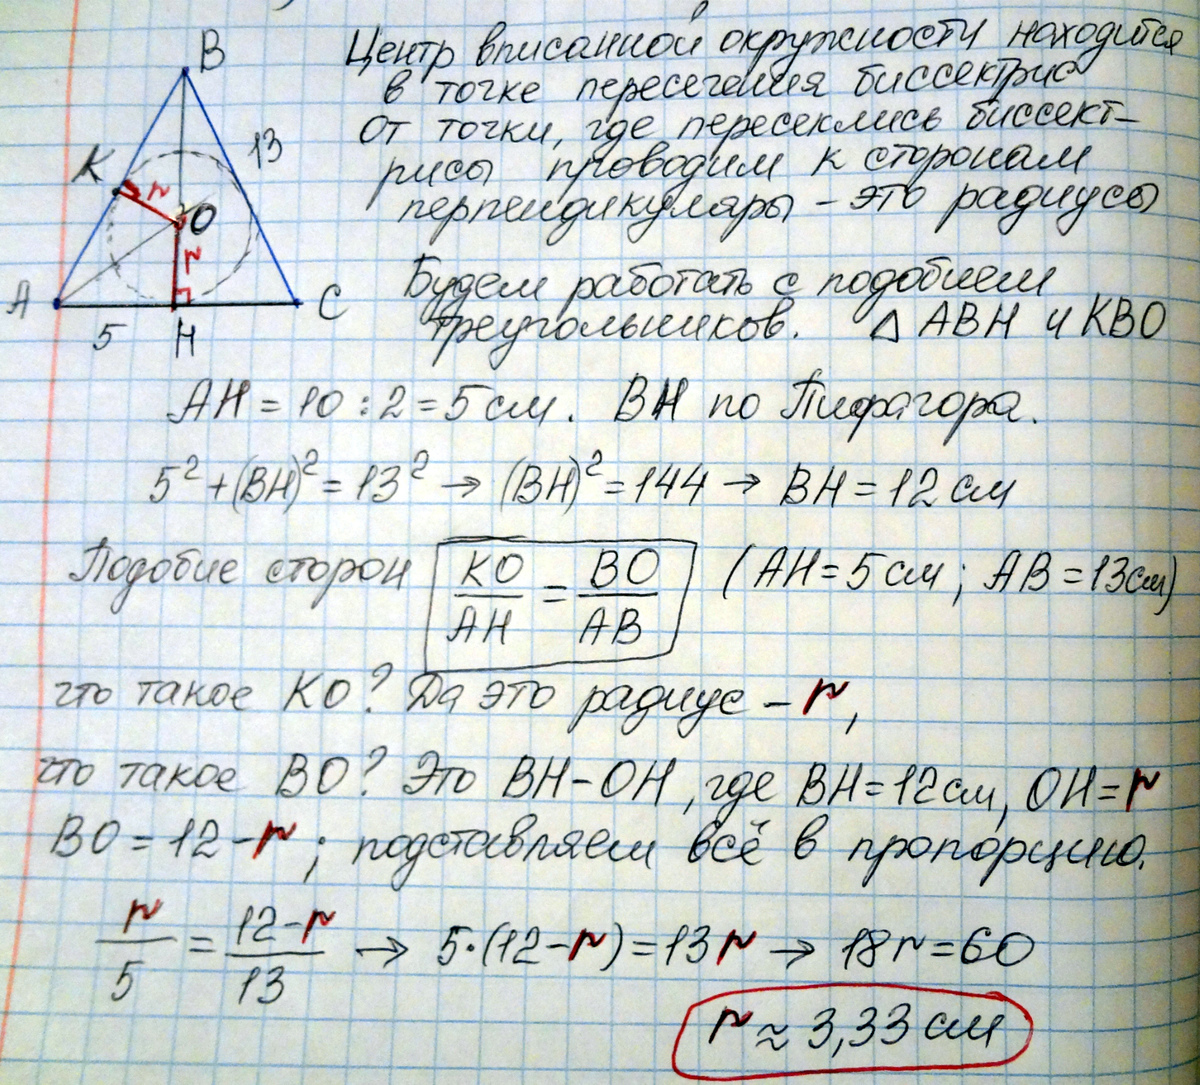 Центр вписанной окружности находится
в точке пересечения биссектрис
От точки, где пересеклись биссект-
рисы проводим к сторонам
перпендикуляры - это радиусы
B
13
K
r
O
r
A
C
5
H
Будем работать с подобием
треугольников. △ ABH и KBO
AH = 10 : 2 = 5 см. BH по Пифагора.
5² + (BH)² = 13² → (BH)² = 144 → BH = 12 см
Подобие сторон KO/AH = BO/AB (AH = 5 см ; AB = 13 см)
что такое KO? Да это радиус - r,
что такое BO? Это BH - OH, где BH = 12 см, OH = r
BO = 12 - r ; подставляем всё в пропорцию.
r/5 = 12-r/13 → 5·(12-r) = 13r → 18r = 60
r ≈ 3,33 см